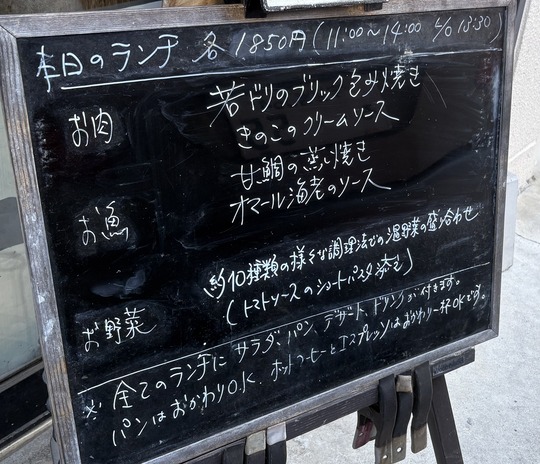 本日のランチ 各1850円(11:00～14:00 L/O 13:30)
お肉
若ドリのブリック包み焼き
きのこのクリームソース
お魚
甘鯛の蒸し焼き
オマール海老のソース
お野菜
約10種類の様々な調理法での温野菜の盛り合わせ
(トマトソースのショートパスタ添え)
※全てのランチにサラダ、パン、デザート、ドリンクが付きます。
パンはおかわりOK、ホットコーヒーとエスプレッソはおかわり一杯OKです。